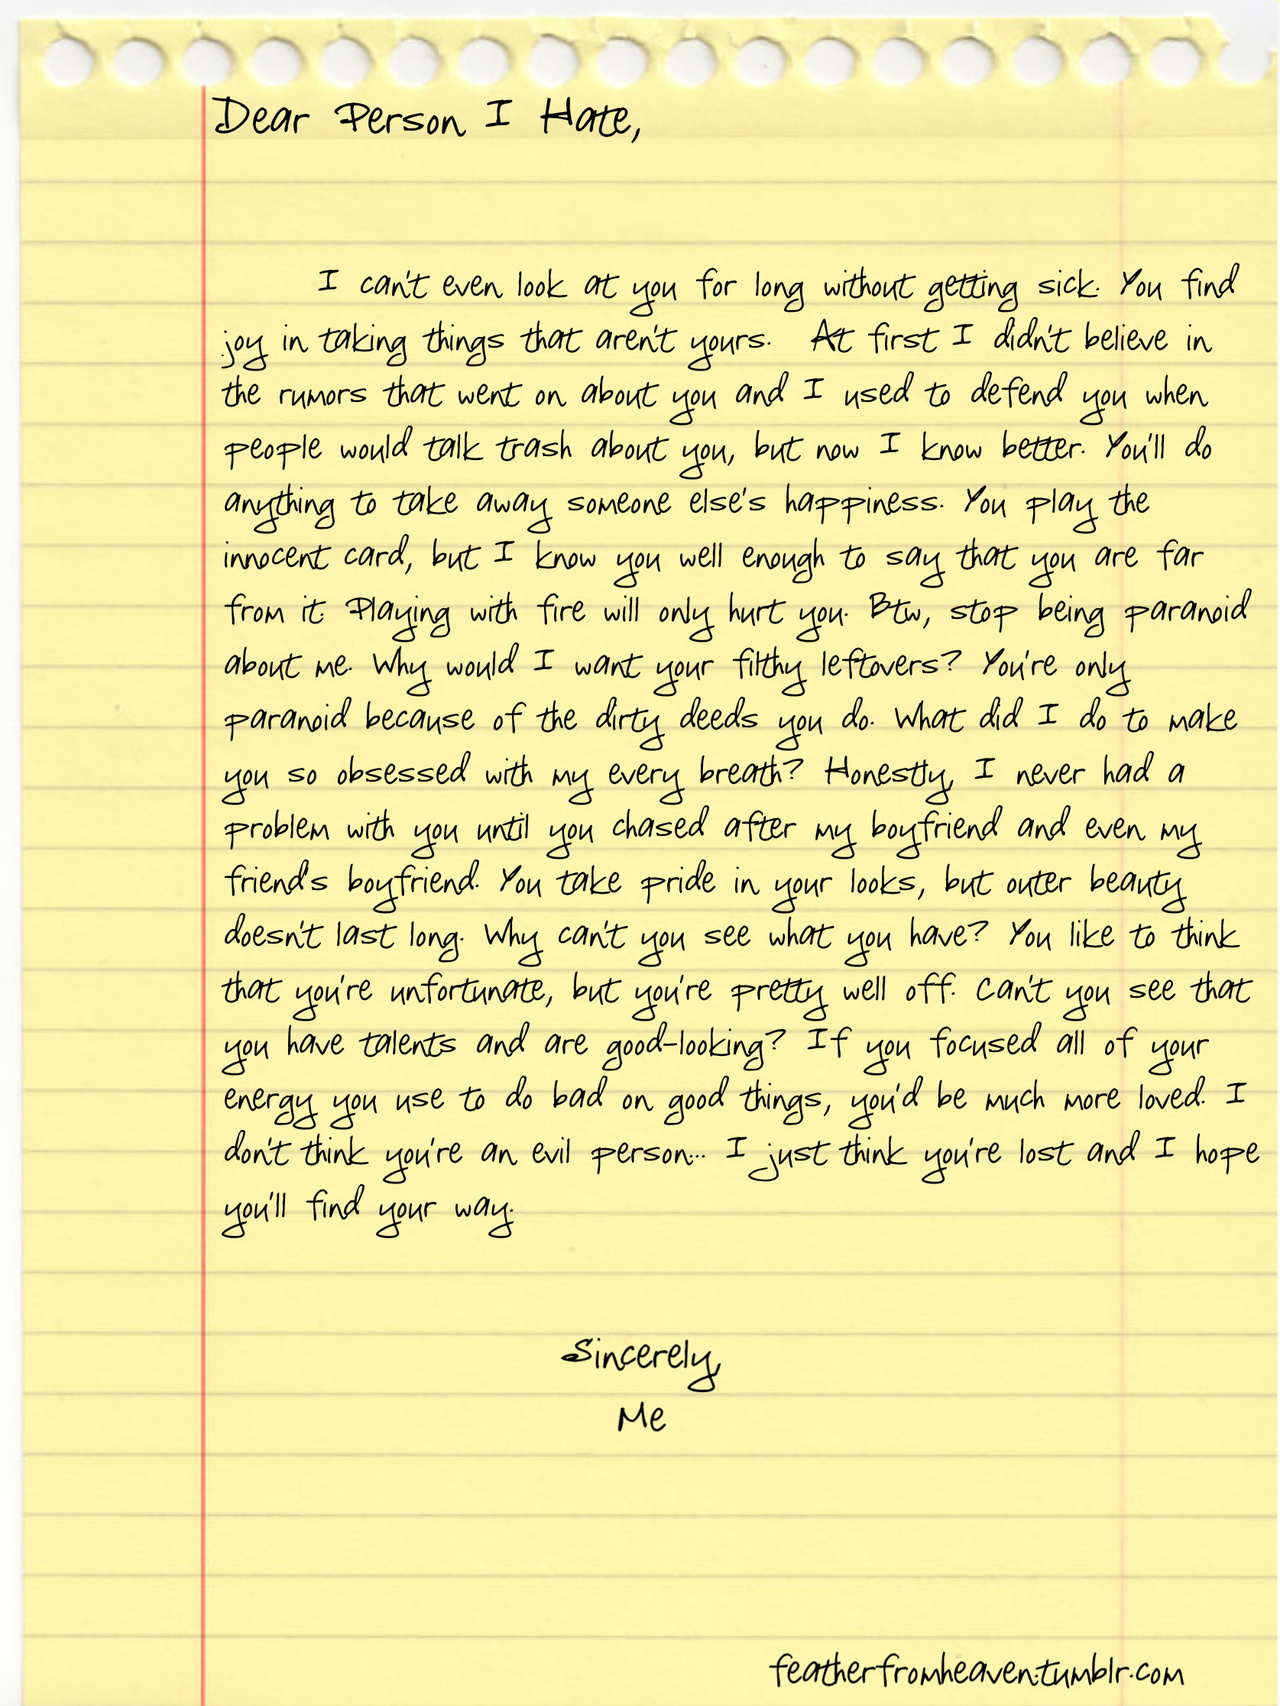 Dear Person I Hate,
I can't even look at you for long without getting sick. You find
joy in taking things that aren't yours. At first I didn't believe in
the rumors that went on about you and I used to defend you when
people would talk trash about you, but now I know better. You'll do
anything to take away someone else's happiness. You play the
innocent card, but I know you well enough to say that you are far
from it. Playing with fire will only hurt you. Btw, stop being paranoid
about me. Why would I want your filthy leftovers? You're only
paranoid because of the dirty deeds you do. What did I do to make
you so obsessed with my every breath? Honestly, I never had a
problem with you until you chased after my boyfriend and even my
friend's boyfriend. You take pride in your looks, but outer beauty
doesn't last long. Why can't you see what you have? You like to think
that you're unfortunate, but you're pretty well off. Can't you see that
you have talents and are good-looking? If you focused all of your
energy you use to do bad on good things, you'd be much more loved. I
don't think you're an evil person... I just think you're lost and I hope
you'll find your way.
Sincerely,
Me
featherfromheaven.tumblr.com